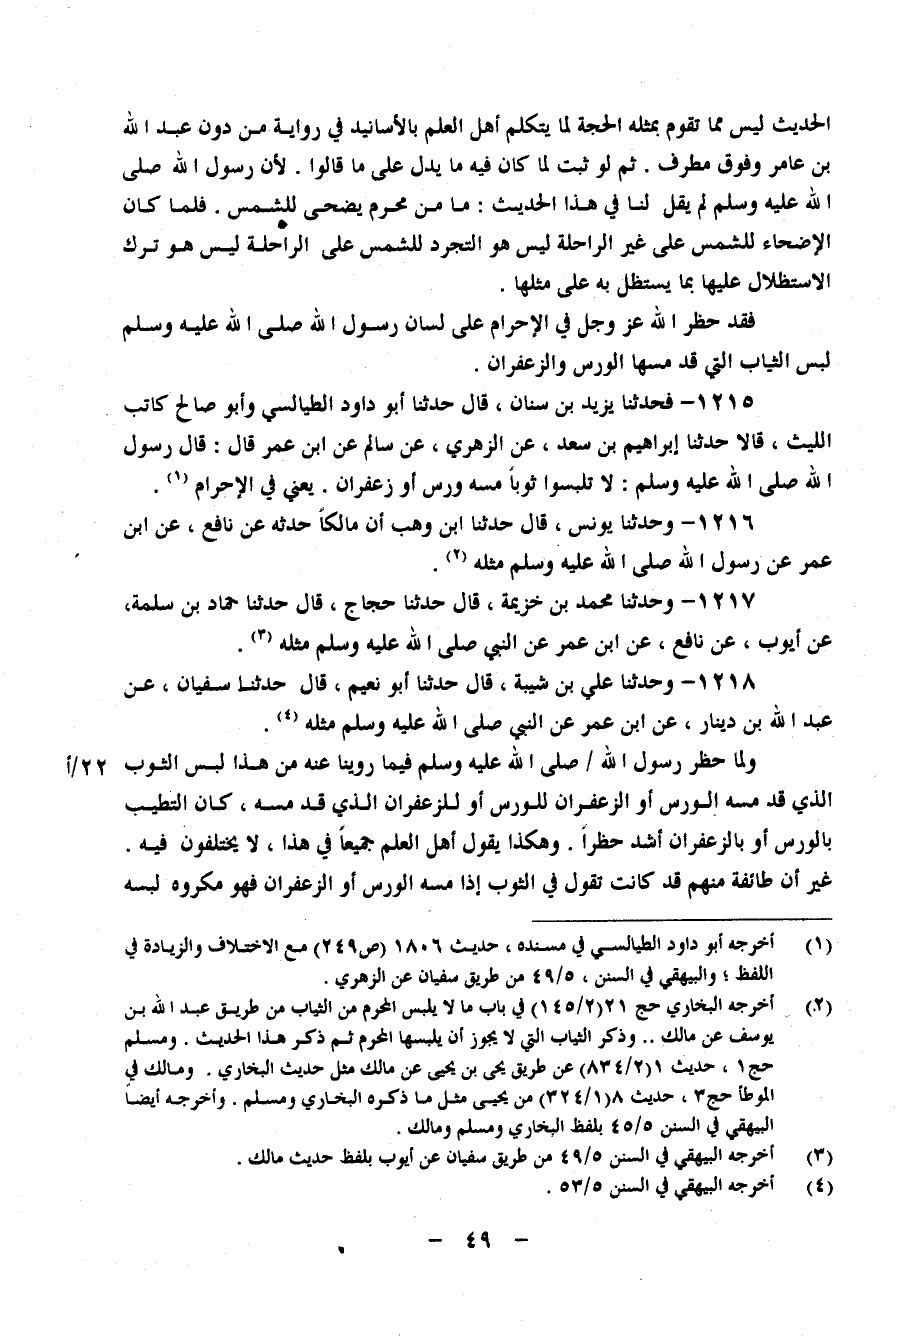 الحديث ليس مما تقوم بمثله الحجة لما يتكلم أهل العلم بالأسانيد في رواية من دون عبد الله
بن عامر وفوق مطرف . ثم لو ثبت لما كان فيه ما يدل على ما قالوا . لأن رسول الله صلى
الله عليه وسلم لم يقل لنا في هذا الحديث : ما من محرم يضحى للشمس . فلما كان
الإضحاء للشمس على غير الراحلة ليس هو التجرد للشمس على الراحلة ليس هو ترك
الاستظلال عليها بما يستظل به على مثلها .
فقد حظر الله عز وجل في الإحرام على لسان رسول الله صلى الله عليه وسلم
لبس الثياب التي قد مسها الورس والزعفران .
١٢١٥- فحدثنا يزيد بن سنان ، قال حدثنا أبو داود الطيالسي وأبو صالح كاتب
الليث ، قالا حدثنا إبراهيم بن سعد ، عن الزهري ، عن سالم عن ابن عمر قال : قال رسول
الله صلى الله عليه وسلم : لا تلبسوا ثوباً مسه ورس أو زعفران . يعني في الإحرام (١) .
١٢١٦- وحدثنا يونس ، قال حدثنا ابن وهب أن مالكاً حدثه عن نافع ، عن ابن
عمر عن رسول الله صلى الله عليه وسلم مثله (٢) .
١٢١٧- وحدثنا محمد بن خزيمة ، قال حدثنا حجاج ، قال حدثنا حماد بن سلمة،
عن أيوب ، عن نافع ، عن ابن عمر عن النبي صلى الله عليه وسلم مثله (٣) .
١٢١٨- وحدثنا علي بن شيبة ، قال حدثنا أبو نعيم ، قال حدثنا سفيان ، عن
عبد الله بن دينار ، عن ابن عمر عن النبي صلى الله عليه وسلم مثله (٤) .
ولما حظر رسول الله / صلى الله عليه وسلم فيما روينا عنه من هذا لبس الثوب ٢٢/أ
الذي قد مسه الورس أو الزعفران للورس أو للزعفران الذي قد مسه ، كان التطيب
بالورس أو بالزعفران أشد حظراً . وهكذا يقول أهل العلم جميعاً في هذا ، لا يختلفون فيه .
غير أن طائفة منهم قد كانت تقول في الثوب إذا مسه الورس أو الزعفران فهو مكروه لبسه
(١) أخرجه أبو داود الطيالسي في مسنده ، حديث ١٨٠٦ (ص٢٤٩) مع الاختلاف والزيادة في
اللفظ ؛ والبيهقي في السنن ، ٤٩/٥ من طريق سفيان عن الزهري .
(٢) أخرجه البخاري حج ٢١(١٤٥/٢) في باب ما لا يلبس المحرم من الثياب من طريق عبد الله بن
يوسف عن مالك .. وذكر الثياب التي لا يجوز أن يلبسها المحرم ثم ذكر هذا الحديث . ومسلم
حج١ ، حديث ١(٨٣٤/٢) عن طريق يحيى بن يحيى عن مالك مثل حديث البخاري . ومالك في
الموطأ حج٣ ، حديث ٨(٣٢٤/١) من يحيى مثل ما ذكره البخاري ومسلم . وأخرجه أيضاً
البيهقي في السنن ٤٥/٥ بلفظ البخاري ومسلم ومالك .
(٣) أخرجه البيهقي في السنن ٤٩/٥ من طريق سفيان عن أيوب بلفظ حديث مالك .
(٤) أخرجه البيهقي في السنن ٥٣/٥ .
- ٤٩ -